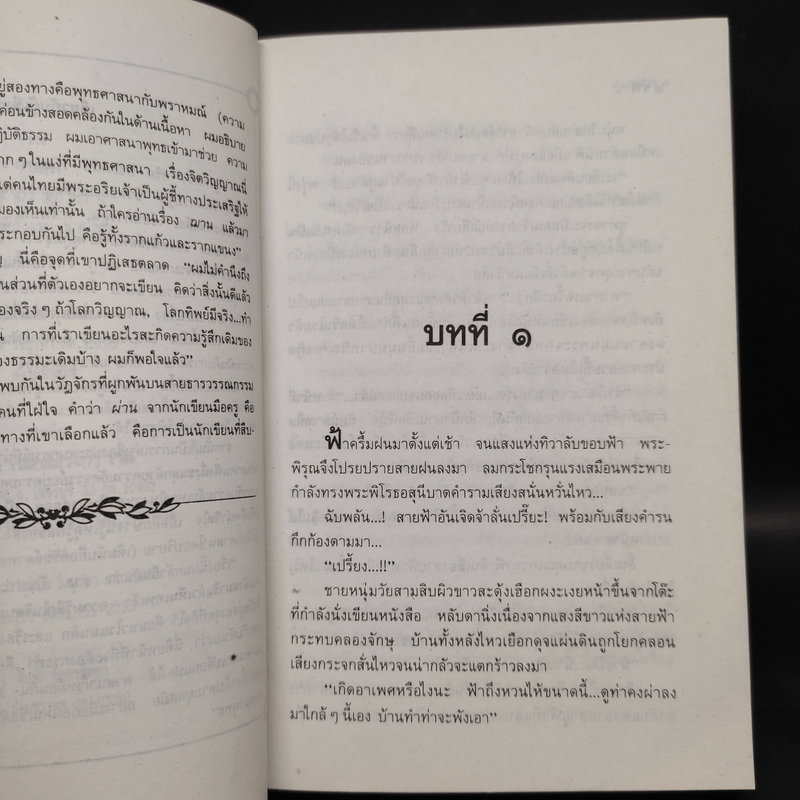 ยู่สองทางคือพุทธศาสนากับพราหมณ์ (ความ
ค่อนข้างสอดคล้องกันในด้านเนื้อหา ผมอธิบาย
ฏิบัติธรรม ผมเอาศาสนาพุทธเข้ามาช่วย ความ
ากๆ ในแง่ที่มีพุทธศาสนา เรื่องจิตวิญญาณนี่
แต่คนไทยมีพระอริยเจ้าเป็นผู้ชี้ทางประเสริฐให้
มองเห็นเท่านั้น ถ้าใครอ่านเรื่อง ฌาน แล้วมา
ระกอบกันไป คือรู้ทั้งรากแก้วและรากแขนง”
นี่คือจุดที่เขาปฏิเสธตลาด “ผมไม่คำนึงถึง
นส่วนที่ตัวเองอยากจะเขียน คิดว่าสิ่งนั้นดีแล้ว
องจริงๆ ถ้าโลกวิญญาณ, โลกทิพย์มีจริง...ทำ
น การที่เราเขียนอะไรสะกิดความรู้สึกเดิมของ
องธรรมะเดิมบ้าง ผมก็พอใจแล้ว”
พบกันในวัฏจักรที่ผูกพันบนสายธารวรรณกรรม
คนที่ใฝ่ใจ คำว่า ผ่าน จากนักเขียนมือครู คือ
ทางที่เขาเลือกแล้ว คือการเป็นนักเขียนที่สืบ-
บทที่ ๑
ฟ้าครึ้มฝนมาตั้งแต่เช้า จนแสงแห่งทิวาลับขอบฟ้า พระ-
พิรุณจึงโปรยปรายสายฝนลงมา ลมกระโชกรุนแรงเสมือนพระพาย
กำลังทรงพระพิโรธอสุนีบาตคำรามเสียงสนั่นหวั่นไหว...
ฉับพลัน...! สายฟ้าอันเจิดจ้าลั่นเปรี๊ยะ! พร้อมกับเสียงคำรน
กึกก้องตามมา...
“เปรี้ยง...!!”
ชายหนุ่มวัยสามสิบผิวขาวสะดุ้งเฮือกผงะเงยหน้าขึ้นจากโต๊ะ
ที่กำลังนั่งเขียนหนังสือ หลับตานิ่งเนื่องจากแสงสีขาวแห่งสายฟ้า
กระทบคลองจักษุ บ้านทั้งหลังไหวเยือกดุจแผ่นดินถูกโยกคลอน
เสียงกระจกสั่นไหวจนน่ากลัวจะแตกร้าวลงมา
“เกิดอาเพศหรือไงนะ ฟ้าถึงหวนไห้ขนาดนี้...ดูท่าคงผ่าลง
มาใกล้ๆ นี้เอง บ้านทำท่าจะพังเอา”